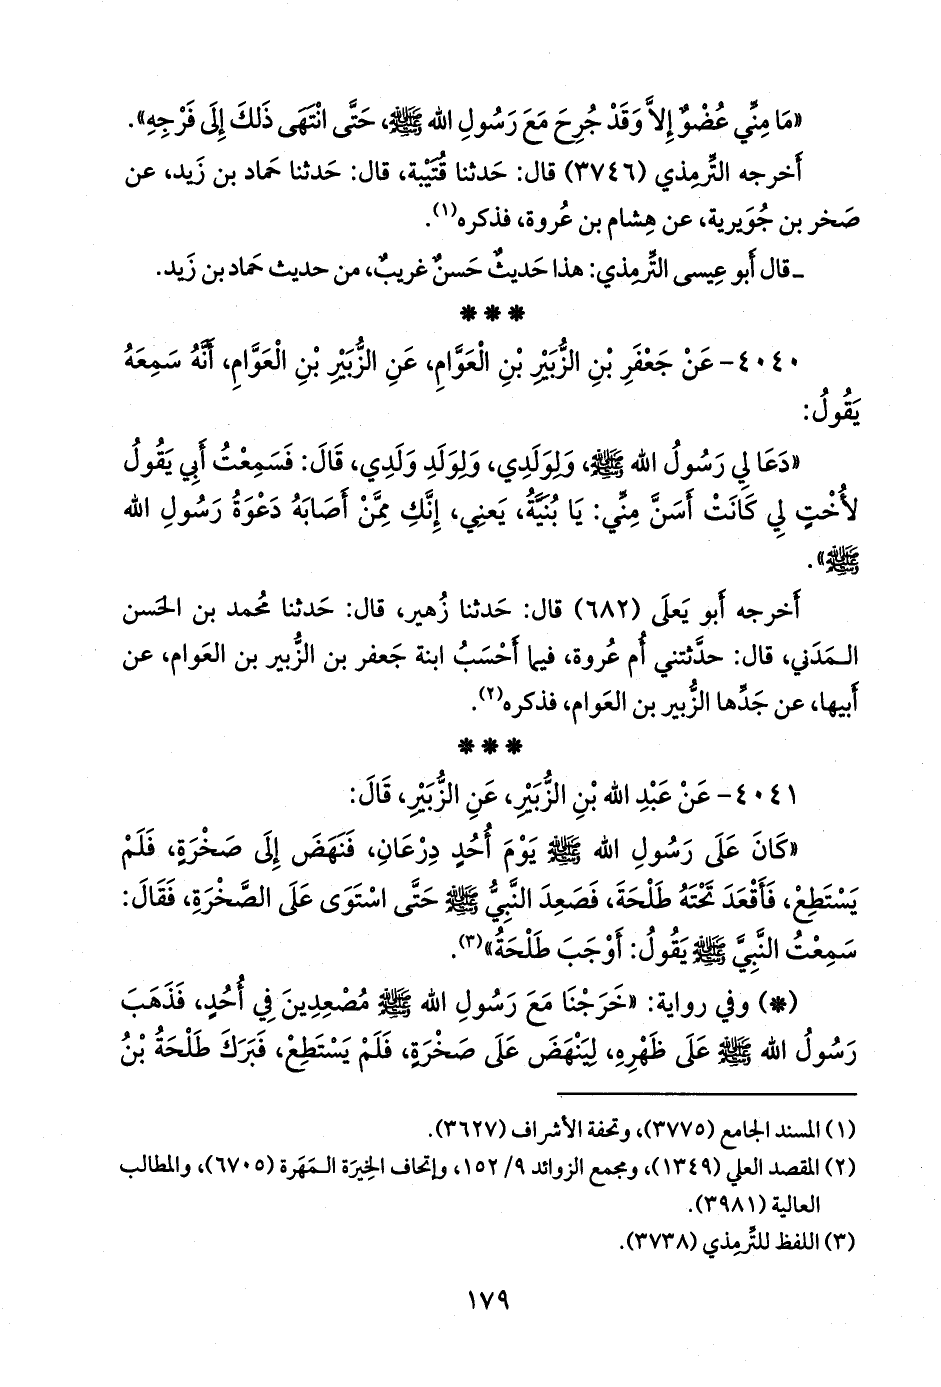 «مَا مِنِّي عُضْوٌ إِلاَّ وَقَدْ جُرِحَ مَعَ رَسُولِ الله ﷺ، حَتَّى انْتَهَى ذَلكَ إِلَى فَرْجِهِ».
أَخرجه التِّرمِذي (٣٧٤٦) قال: حَدثنا قُتَيبة، قال: حَدثنا حَماد بن زَيد، عن
صَخر بن جُوَيرية، عن هِشام بن عُروة، فذكره(١).
ـ قال أَبو عِيسى التِّرمِذي: هذا حَديثٌ حَسنٌ غريبٌ، من حديث حَماد بن زَيد.
* * *
٤٠٤٠- عَنْ جَعْفَرِ بْنِ الزُّبَيْرِ بْنِ الْعَوَّامِ، عَنِ الزُّبَيْرِ بْنِ الْعَوَّامِ، أَنَّهُ سَمِعَهُ
يَقُولُ:
«دَعَا لِي رَسُولُ الله ﷺ، وَلِوَلَدِي، وَلِوَلَدِ وَلَدِي، قَالَ: فَسَمِعْتُ أَبِي يَقُولُ
لأُخْتٍ لِي كَانَتْ أَسَنَّ مِنِّي: يَا بُنَيَّةُ، يَعنِي، إِنَّكِ مِمَّنْ أَصَابَهُ دَعْوَةُ رَسُولِ الله
ﷺ».
أَخرجه أَبو يَعلَى (٦٨٢) قال: حَدثنا زُهير، قال: حَدثنا مُحمد بن الحَسن
الـمَدَني، قال: حدَّثتني أُم عُروة، فيما أَحْسَبُ ابنة جَعفر بن الزُّبير بن العَوام، عن
أَبيها، عن جَدِّها الزُّبير بن العَوام، فذكره(٢).
* * *
٤٠٤١- عَنْ عَبْدِ الله بْنِ الزُّبَيْرِ، عَنِ الزُّبَيْرِ، قَالَ:
«كَانَ عَلَى رَسُولِ الله ﷺ يَوْمَ أُحُدٍ دِرْعَانِ، فَنَهَضَ إِلَى صَخْرَةٍ، فَلَمْ
يَسْتَطِعْ، فَأَقْعَدَ تَحْتَهُ طَلْحَةَ، فَصَعِدَ النَّبِيُّ ﷺ حَتَّى اسْتَوَى عَلَى الصَّخْرَةِ، فَقَالَ:
سَمِعْتُ النَّبِيَّ ﷺ يَقُولُ: أَوْجَبَ طَلْحَةُ»(٣).
(*) وفي رواية: «خَرَجْنَا مَعَ رَسُولِ الله ﷺ مُصْعِدِينَ فِي أُحُدٍ، فَذَهَبَ
رَسُولُ الله ﷺ عَلَى ظَهْرِهِ، لِيَنْهَضَ عَلَى صَخْرَةٍ، فَلَمْ يَسْتَطِعْ، فَبَرَكَ طَلْحَةُ بْنُ
(١) المسند الجامع (٣٧٧٥)، وتحفة الأشراف (٣٦٢٧).
(٢) المقصد العلي (١٣٤٩)، ومجمع الزوائد ٩/ ١٥٢، وإتحاف الخِيرَة الـمَهَرة (٦٧٠٥)، والمطالب
العالية (٣٩٨١).
(٣) اللفظ للتِّرمِذي (٣٧٣٨).
١٧٩